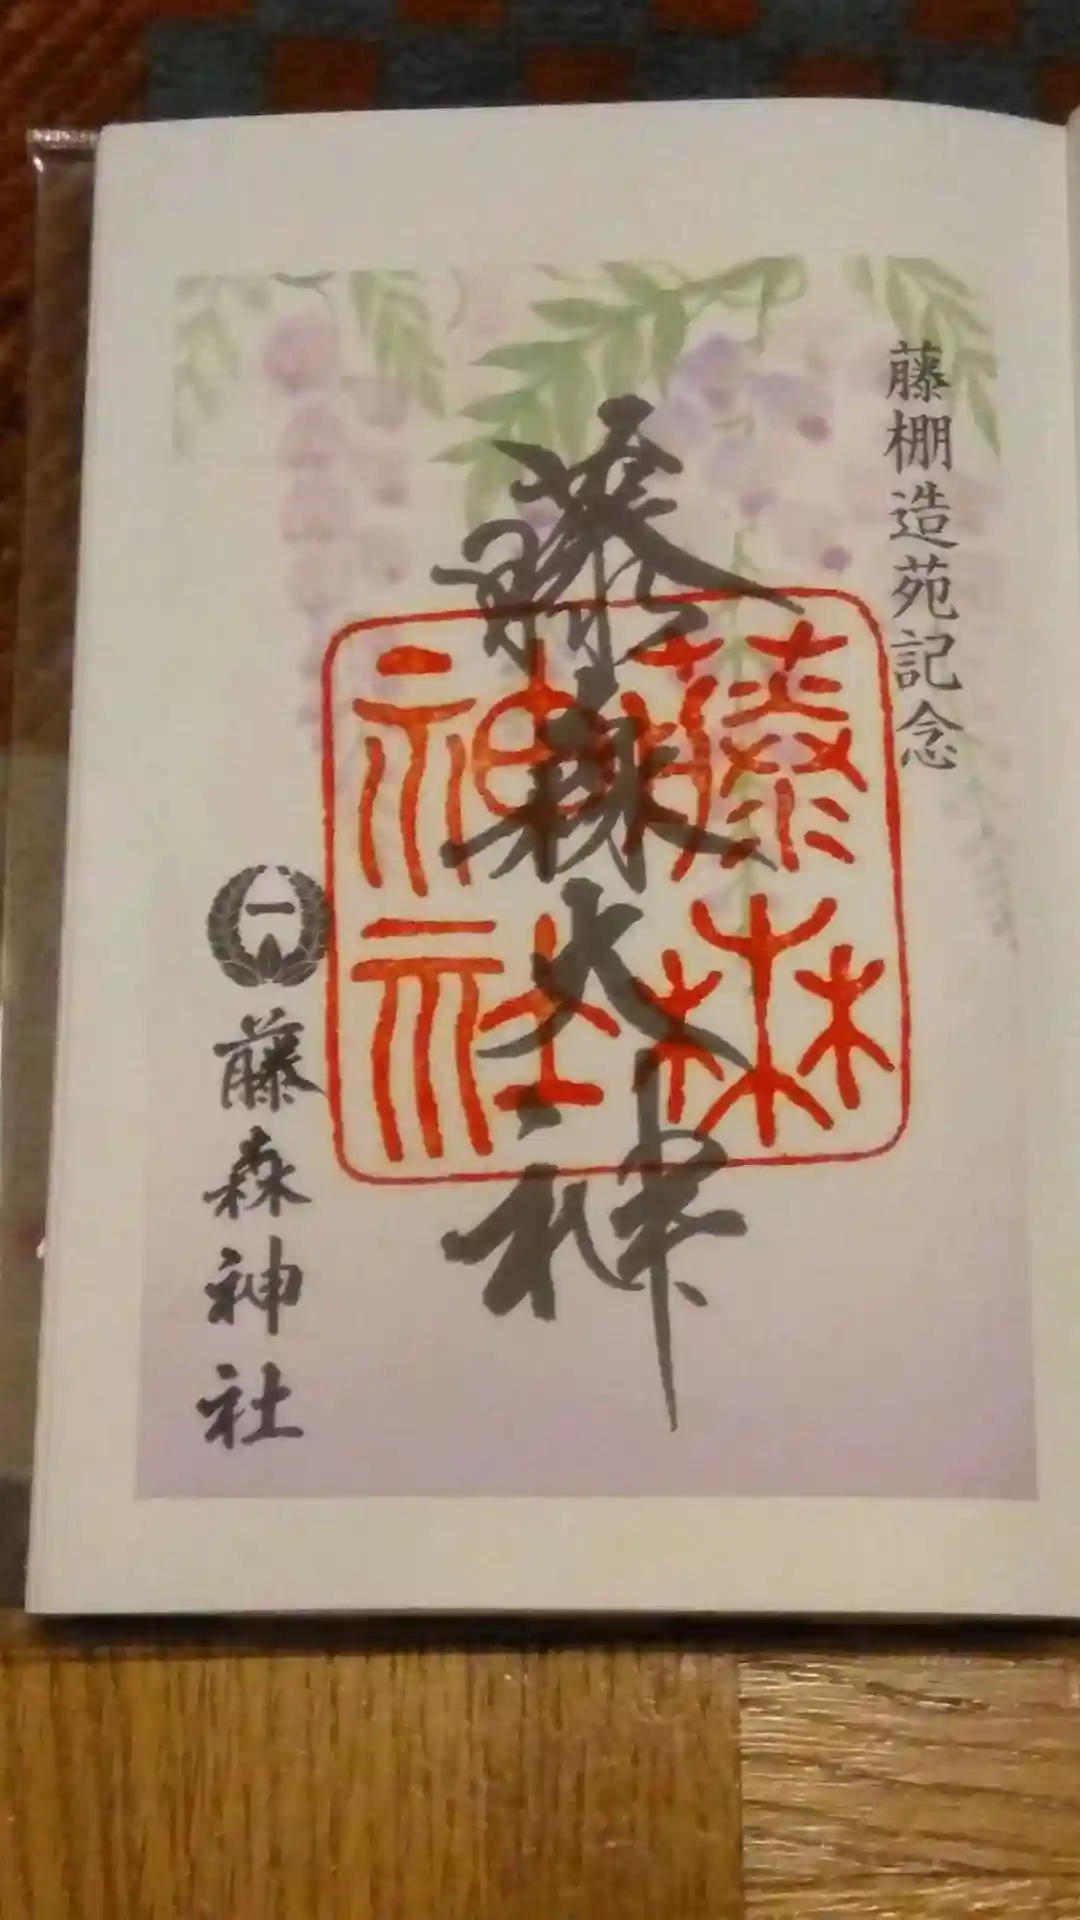 藤棚造苑記念
藤森大神
藤森神社
一
藤森神社